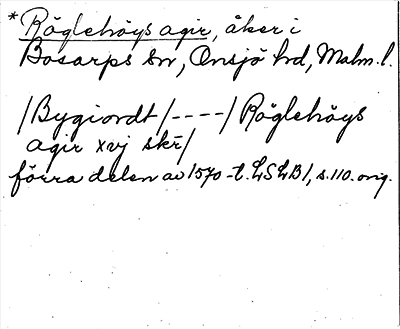 * Röglehöys agir, åker i
Bosarps sn, Onsjö hd, Malm. l.
/Bygiordt/----/Röglehöys
agir xvj skr̄/
förra delen av 1570-t. LSLB1, s. 110. orig.